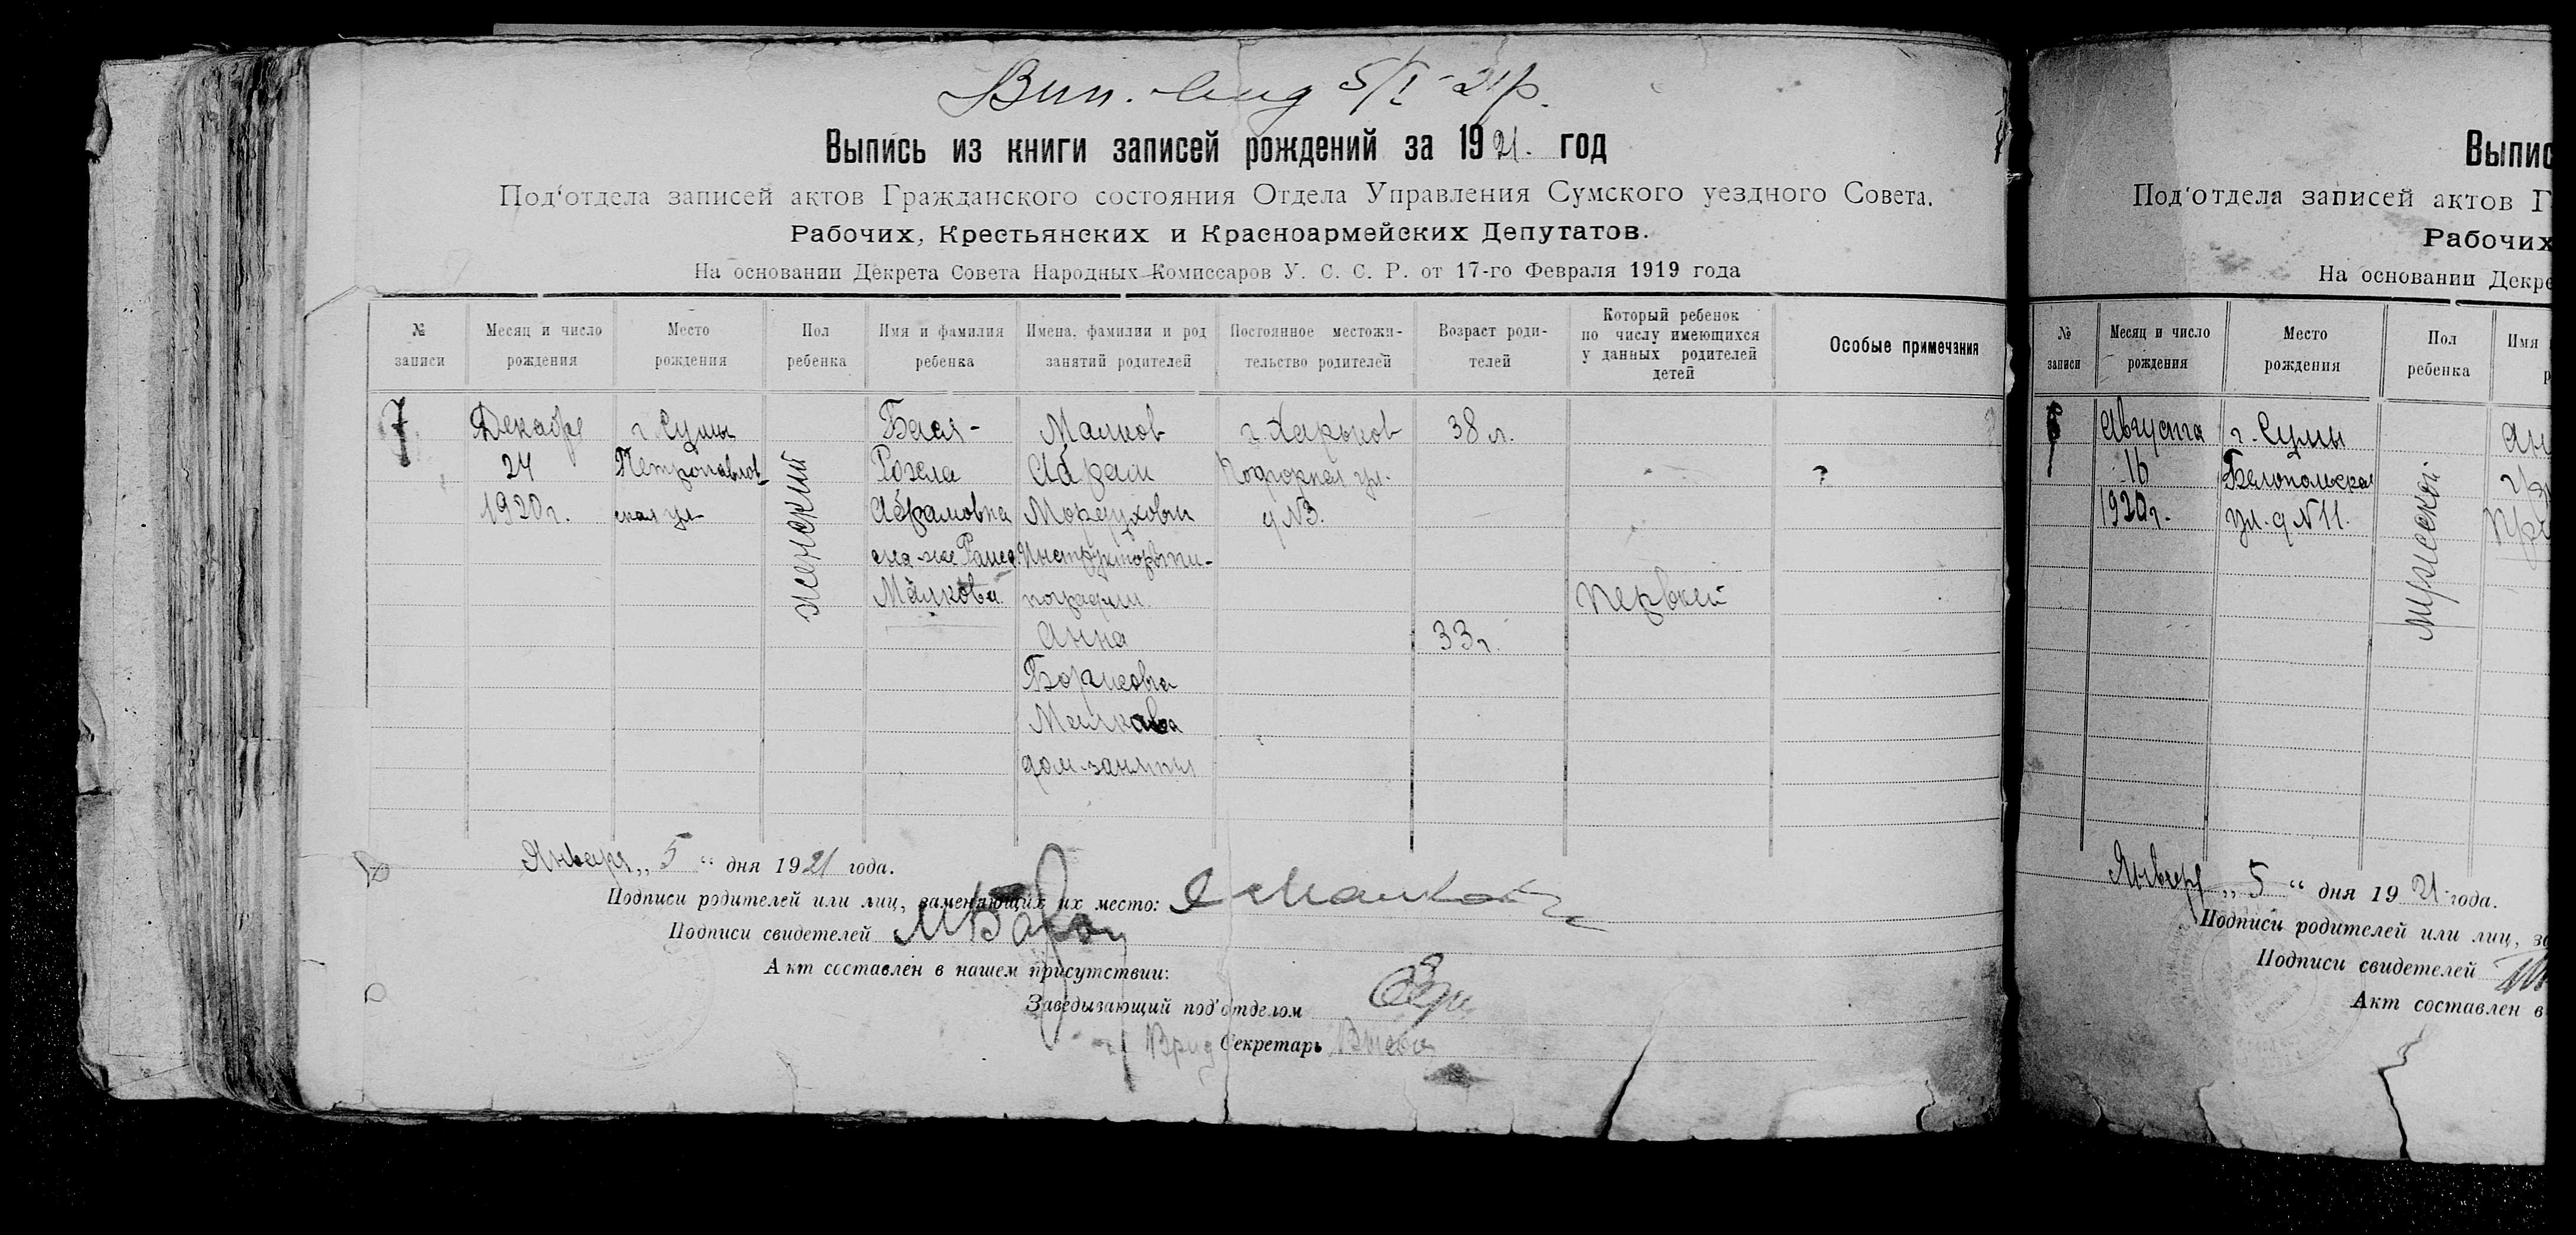 Вип. вид 5/I-21р.
Выпись из книги записей рождений за 1921. год
Под'отдела записей актов Гражданского состояния Отдела Управления Сумского уездного Совета.
Рабочих, Крестьянских и Красноармейских Депутатов.
На основании Декрета Совета Народных Комиссаров У. С. С. Р. от 17-го Февраля 1919 года
№ записи
Месяц и число рождения
Место рождения
Пол ребенка
Имя и фамилия ребенка
Имена, фамилии и род занятий родителей
Постоянное местожи-тельство родителей
Возраст роди-телей
Который ребенок по числу имеющихся у данных родителей детей
Особые примечания
7 Декабря г. Сумы Бася- Малков г. Харьков 38 л.
24 Петропавлов- Рохля Абрам Подгорная ул. ?
1920г. ская ул. женский Абрамовна Мордухович д №3.
она же Раиса Инструктор ти-
Малкова пографии первый
Анна 33г.
Борисовна
Малкова
дом. занятия
Января „ 5 “ дня 1921 года.
Подписи родителей или лиц, заменяющих их место: А Малков
Подписи свидетелей
Акт составлен в нашем присутствии:
Заведывающий под'отделом
Врид Секретарь
Выпис
Под'отдела записей актов Г
Рабочих
На основании Декре
№ записи
Месяц и число рождения
Место рождения
Пол ребенка
Имя
8 Августа г. Сумы
16 Белопольская
1920г. ул. д №11. мужской
Января „ 5 “ дня 1921 года.
Подписи родителей или лиц, за
Подписи свидетелей
Акт составлен в